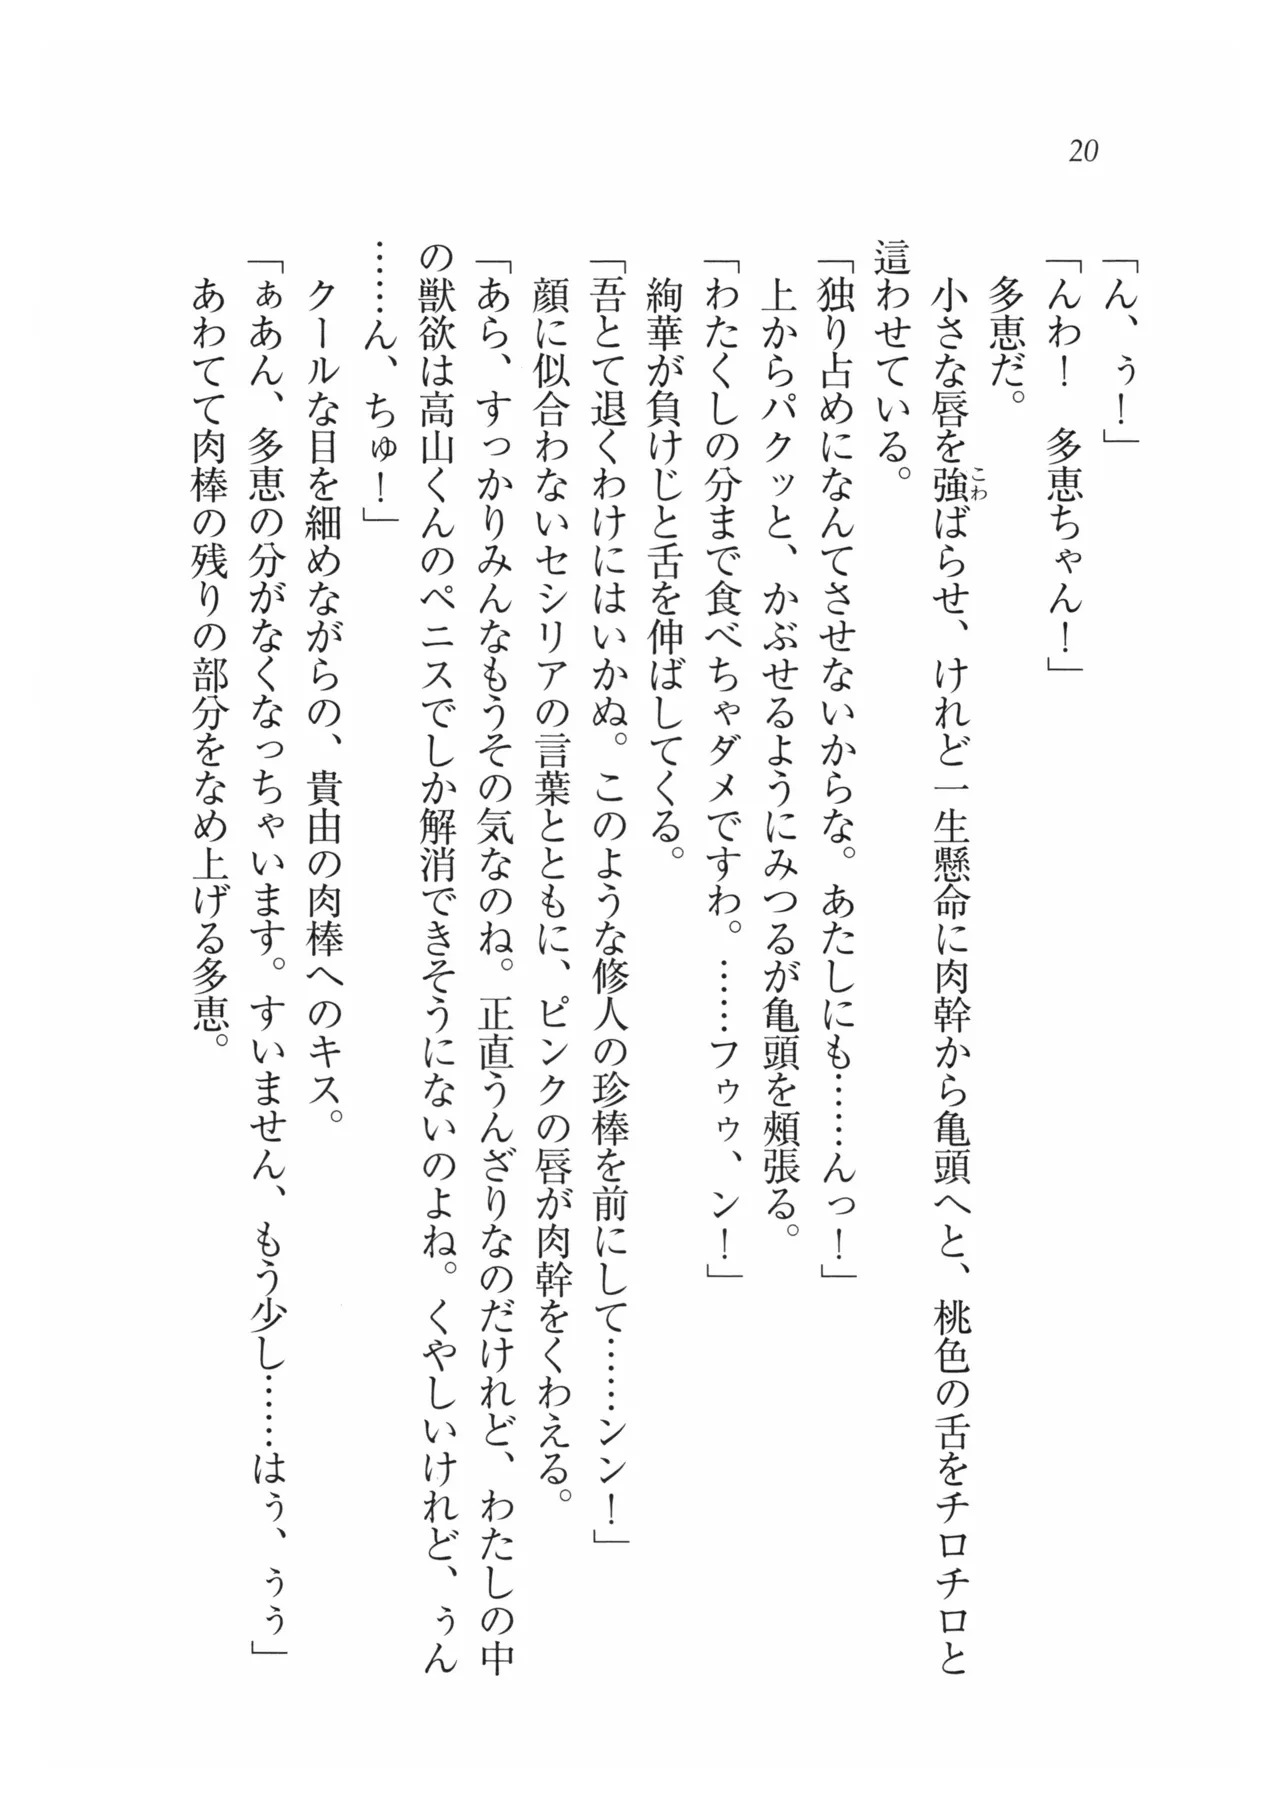 20
「ん、ぅ！」
「んわ！　多恵ちゃん！」
　多恵だ。
　小さな唇を強ばらせ、けれど一生懸命に肉幹から亀頭へと、桃色の舌をチロチロと
こわ
這わせている。
「独り占めになんてさせないからな。あたしにも……んっ！」
　上からパクッと、かぶせるようにみつるが亀頭を頬張る。
「わたくしの分まで食べちゃダメですわ。……フゥゥ、ン！」
　絢華が負けじと舌を伸ばしてくる。
「吾とて退くわけにはいかぬ。このような修人の珍棒を前にして……ンン！」
　顔に似合わないセシリアの言葉とともに、ピンクの唇が肉幹をくわえる。
「あら、すっかりみんなもうその気なのね。正直うんざりなのだけれど、わたしの中
の獣欲は高山くんのペニスでしか解消できそうにないのよね。くやしいけれど、ぅん
……ん、ちゅ！」
　クールな目を細めながらの、貴由の肉棒へのキス。
「ぁあん、多恵の分がなくなっちゃいます。すいません、もう少し……はぅ、ぅぅ」
　あわてて肉棒の残りの部分をなめ上げる多恵。